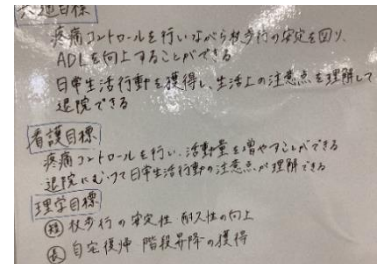 共通目標
疼痛コントロールを行いながら杖歩行の安定を図り、
ADLを向上することができる
日常生活行動を獲得し、生活上の注意点を理解して
退院できる
看護目標
疼痛コントロールを行い、活動量を増やすことができる
退院にむけて日常生活行動の注意点が理解できる
理学目標
短 杖歩行の安定性 耐久性の向上
長 自宅復帰 階段昇降の獲得